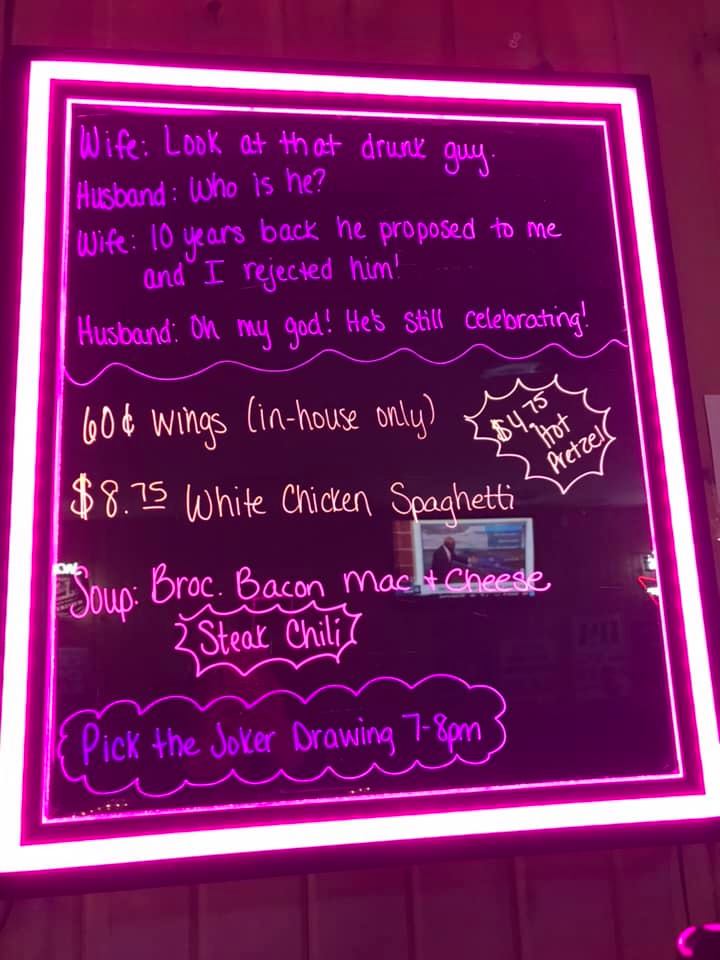 Wife: Look at that drunk guy.
Husband: Who is he?
Wife: 10 years back he proposed to me
and I rejected him!
Husband: Oh my god! He's still celebrating!
60¢ wings (in-house only)
$4.75
Hot
Pretzel
$8.75 White Chicken Spaghetti
Soup: Broc. Bacon Mac + Cheese
Steak Chili
Pick the Joker Drawing 7-8pm